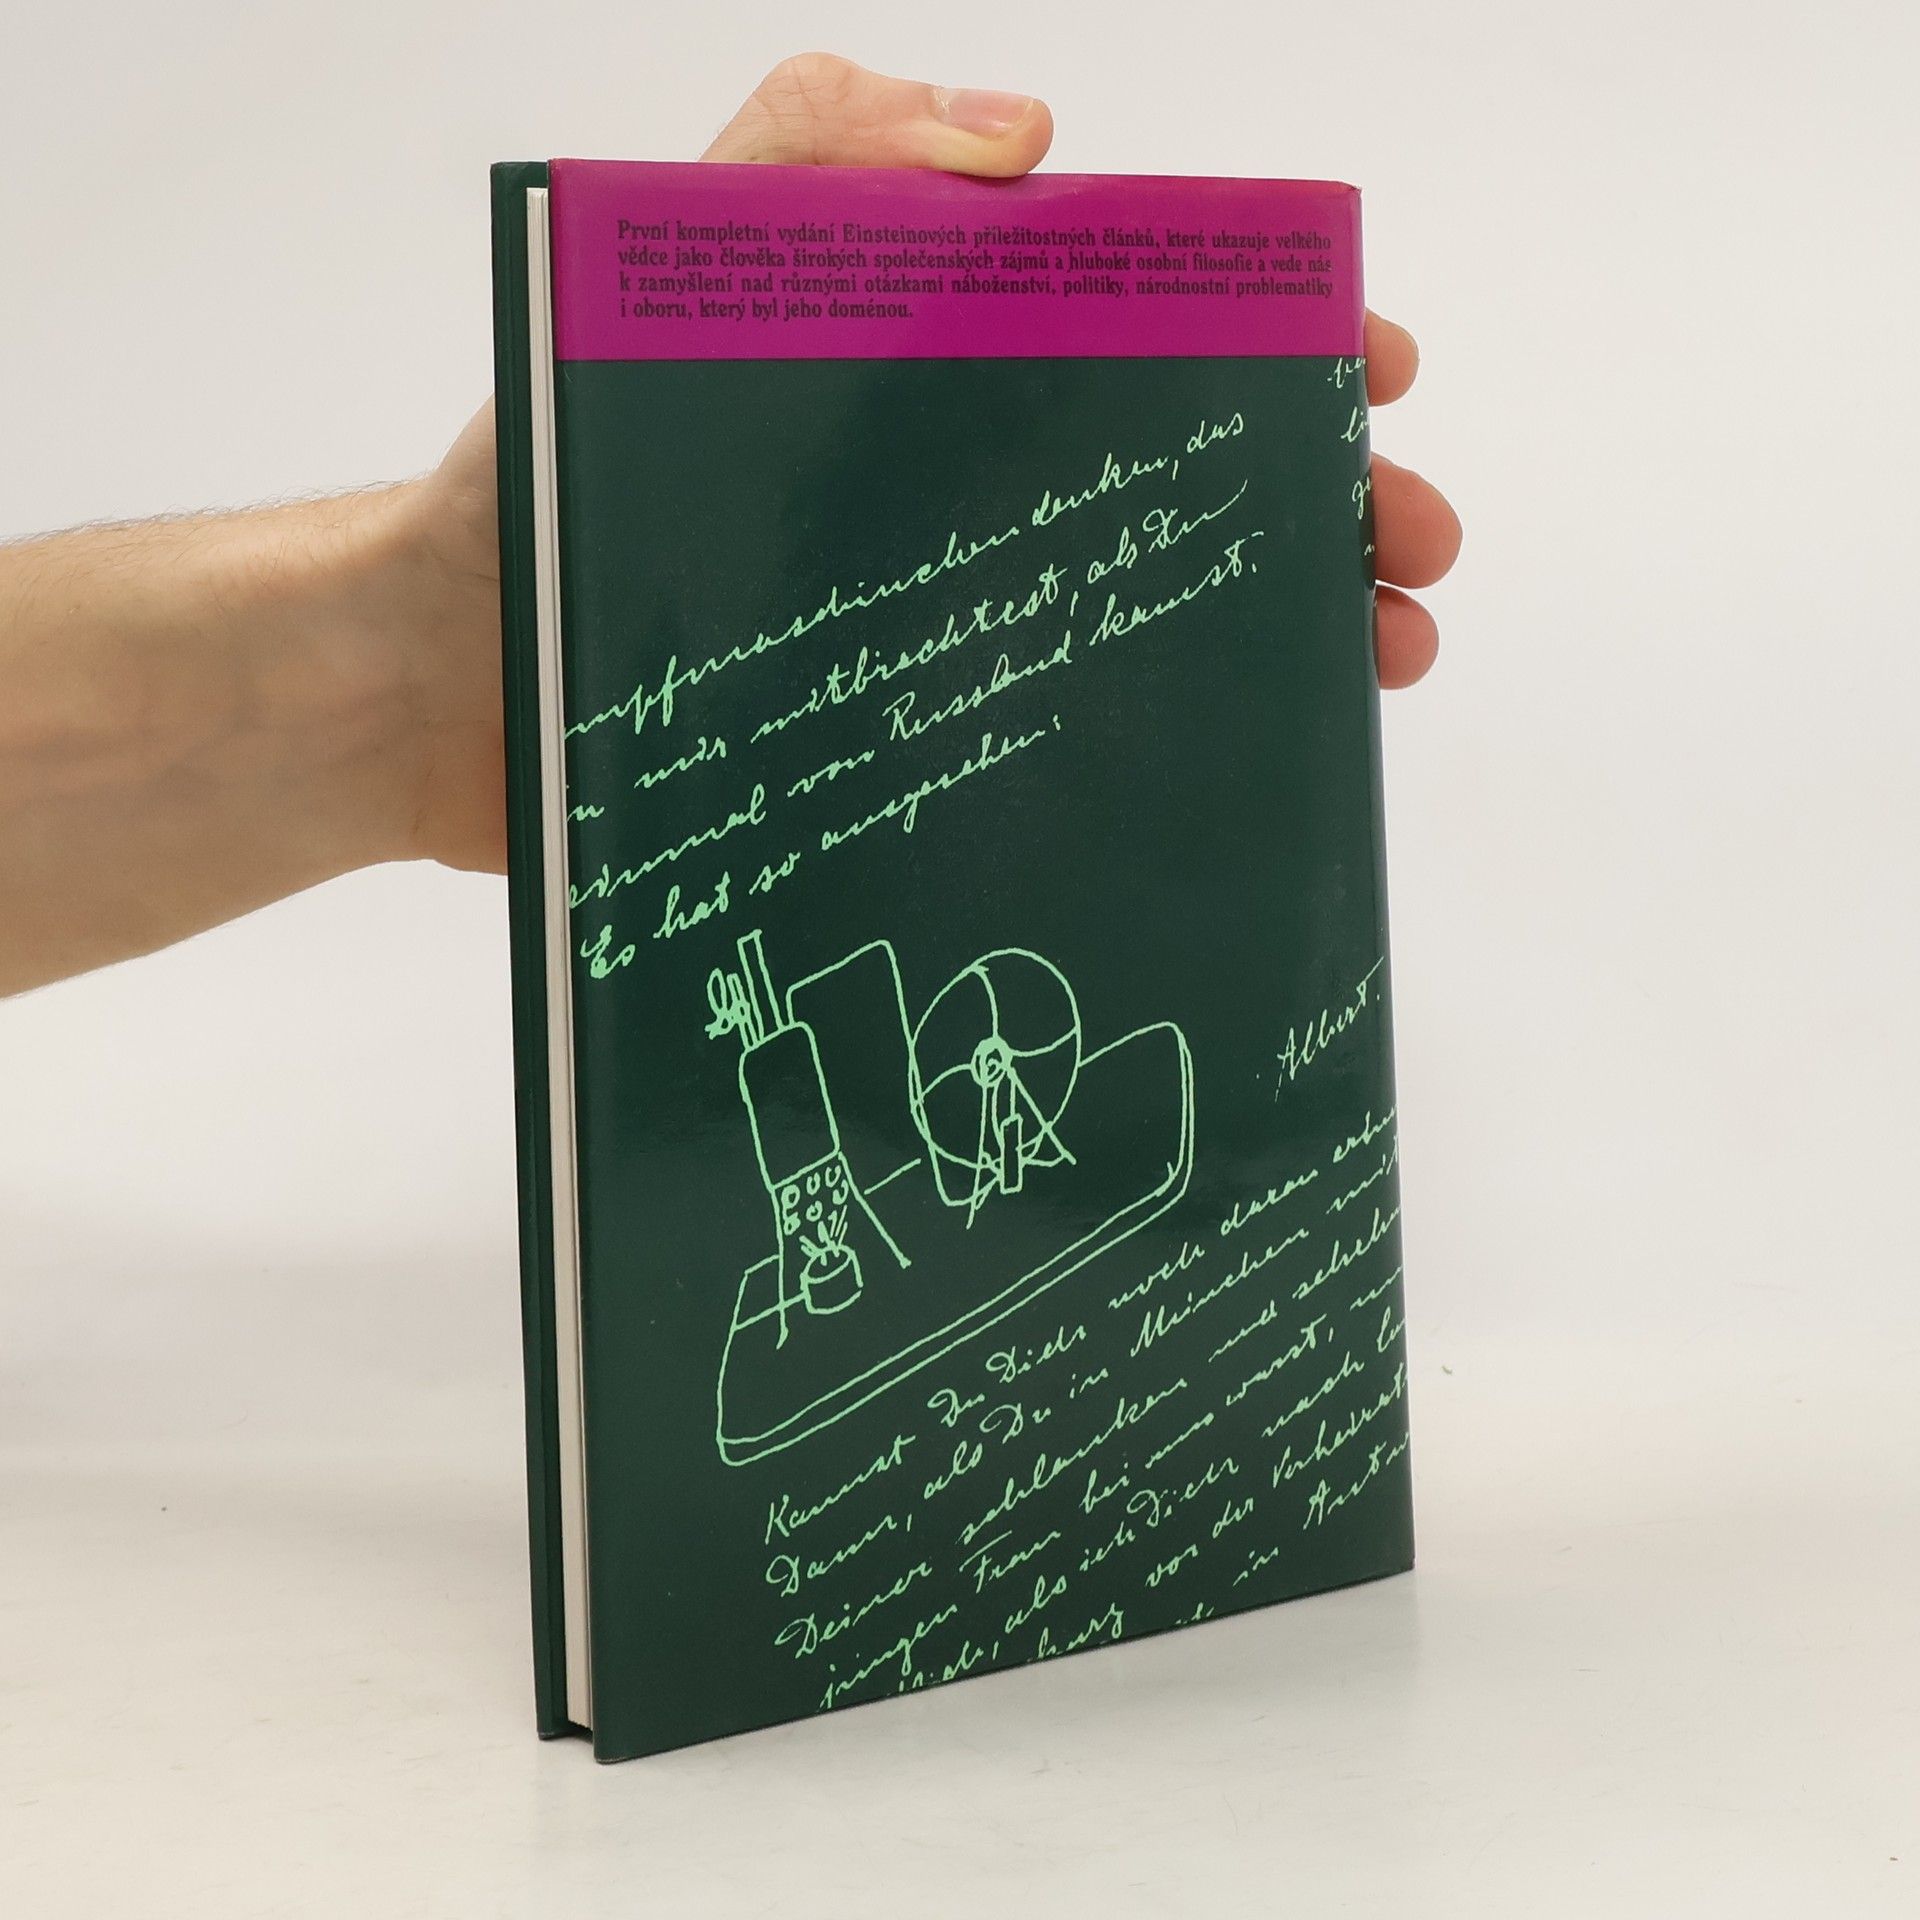 První kompletní vydání Einsteinových příležitostných článků, které ukazuje velkého
vědce jako člověka širokých společenských zájmů a hluboké osobní filosofie a vede nás
k zamyšlení nad různými otázkami náboženství, politiky, národnostní problematiky
i oboru, který byl jeho doménou.
denken, das
mir mitbrachtest, als Du
von Russland kamst.
Es hat so ausgesehen:
Albert.
Kannst Du Dich noch daran
Dann, als Du in München mit
Deiner schlanken und
jungen Frau bei uns warst,
als ich Dich nach
kurz vor der
in